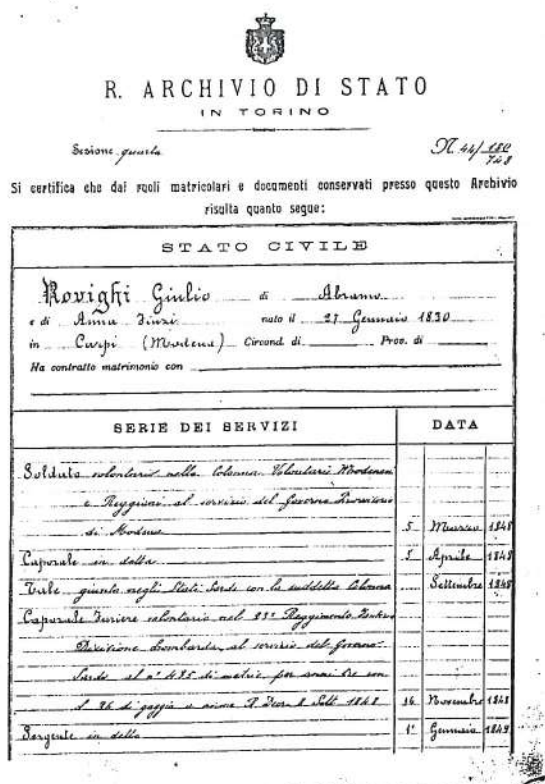 R. ARCHIVIO DI STATO
IN TORINO
Sezione quarta
N. 44/180
748
Si certifica che dai ruoli matricolari e documenti conservati presso questo Archivio
risulta quanto segue:
STATO CIVILE
Rovighi Giulio di Abramo
e di Anna Finzi nato il 27 Gennaio 1830
in Carpi (Modena) Circond. di Prov. di
Ha contratto matrimonio con
SERIE DEI SERVIZI DATA
Soldato volontario nella Colonna Volontari Modenesi
e Reggiani al servizio del Governo Provvisorio
di Modena 5 Marzo 1848
Caporale in detta 5 Aprile 1848
Tale giunto negli Stati Sardi con la suddetta Colonna Settembre 1848
Caporale Furiere volontario nel 23° Reggimento Fanteria
Divisione Lombarda, al servizio del Governo
Sardo al n° 435 di matric. per anni tre con
R. Decr. 8 Sett. 1848 16 Novembre 1848
Sergente in detto 1° Gennaio 1849